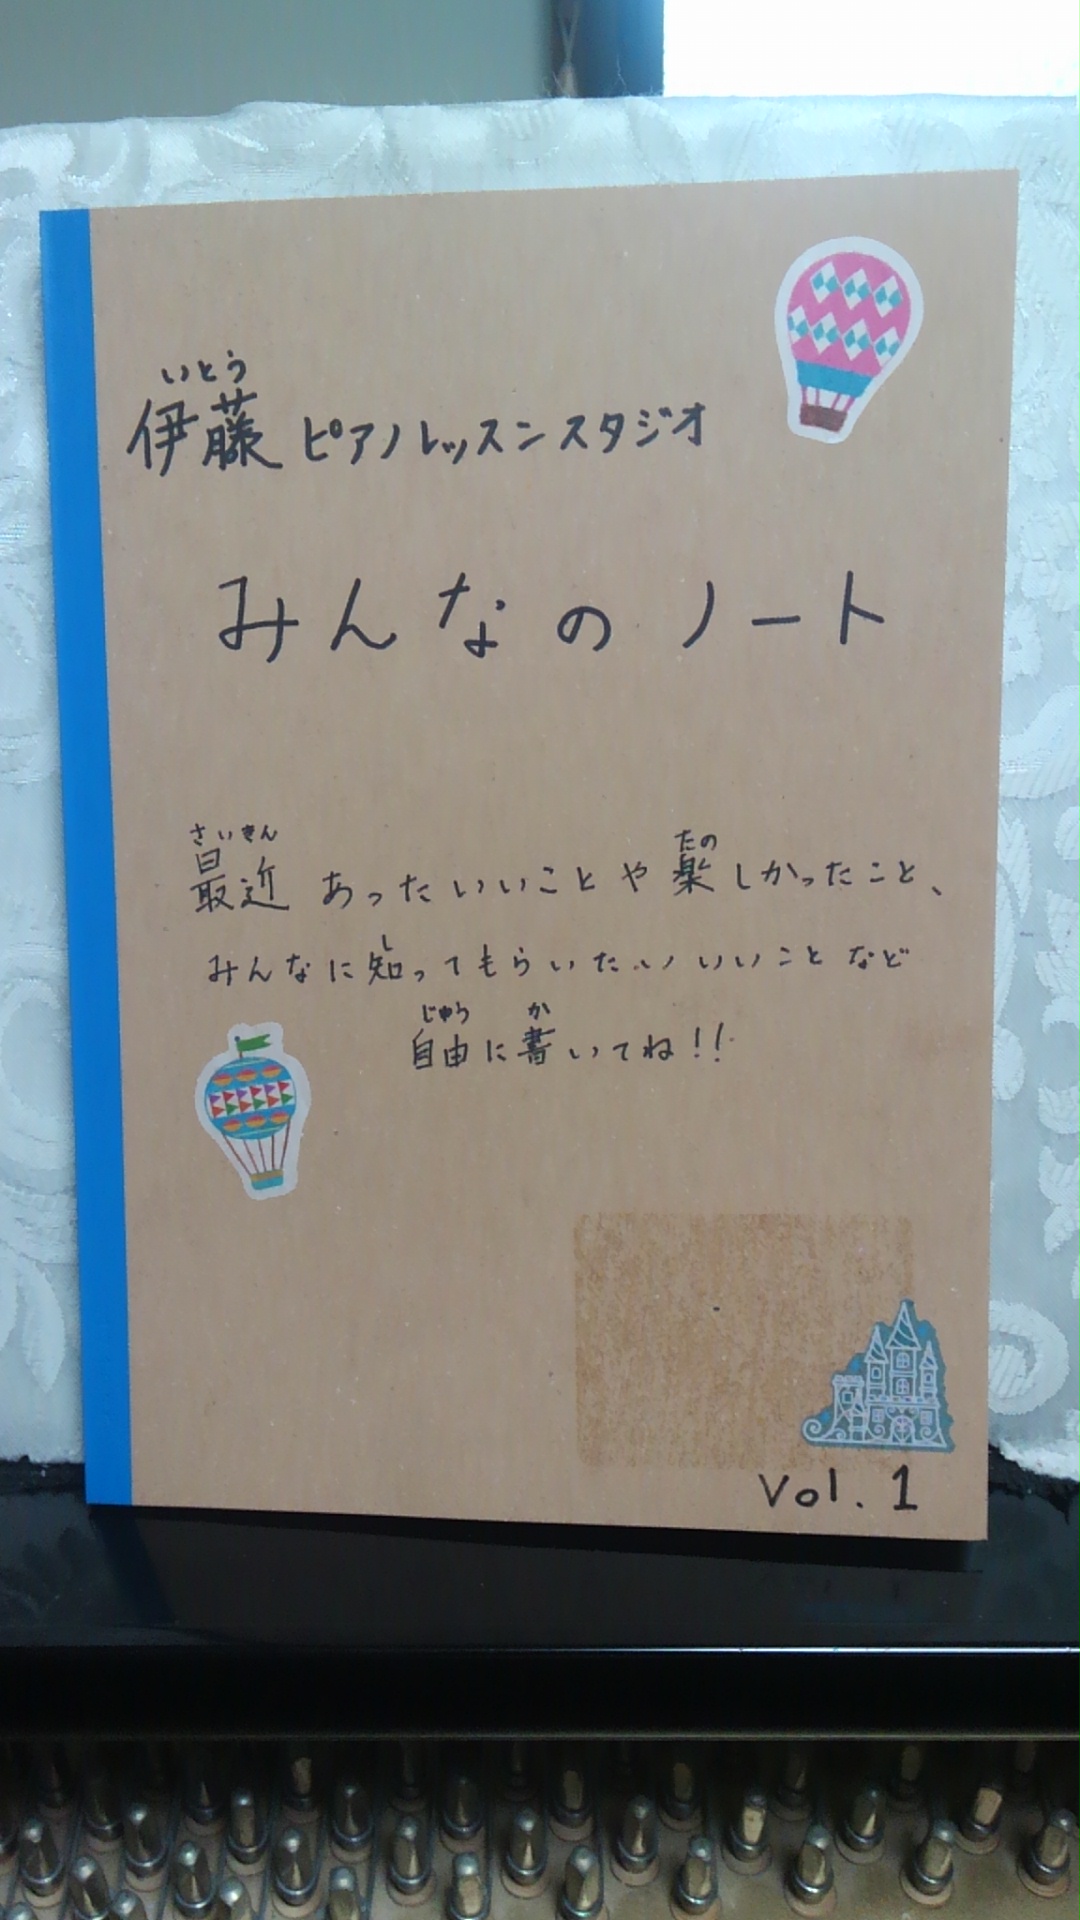 いとう
伊藤 ピアノレッスンスタジオ
みんなのノート
さいきん たの
最近 あったいいことや楽しかったこと、
し
みんなに知ってもらいたいいいことなど
じゆう か
自由に書いてね!!
Vol. 1